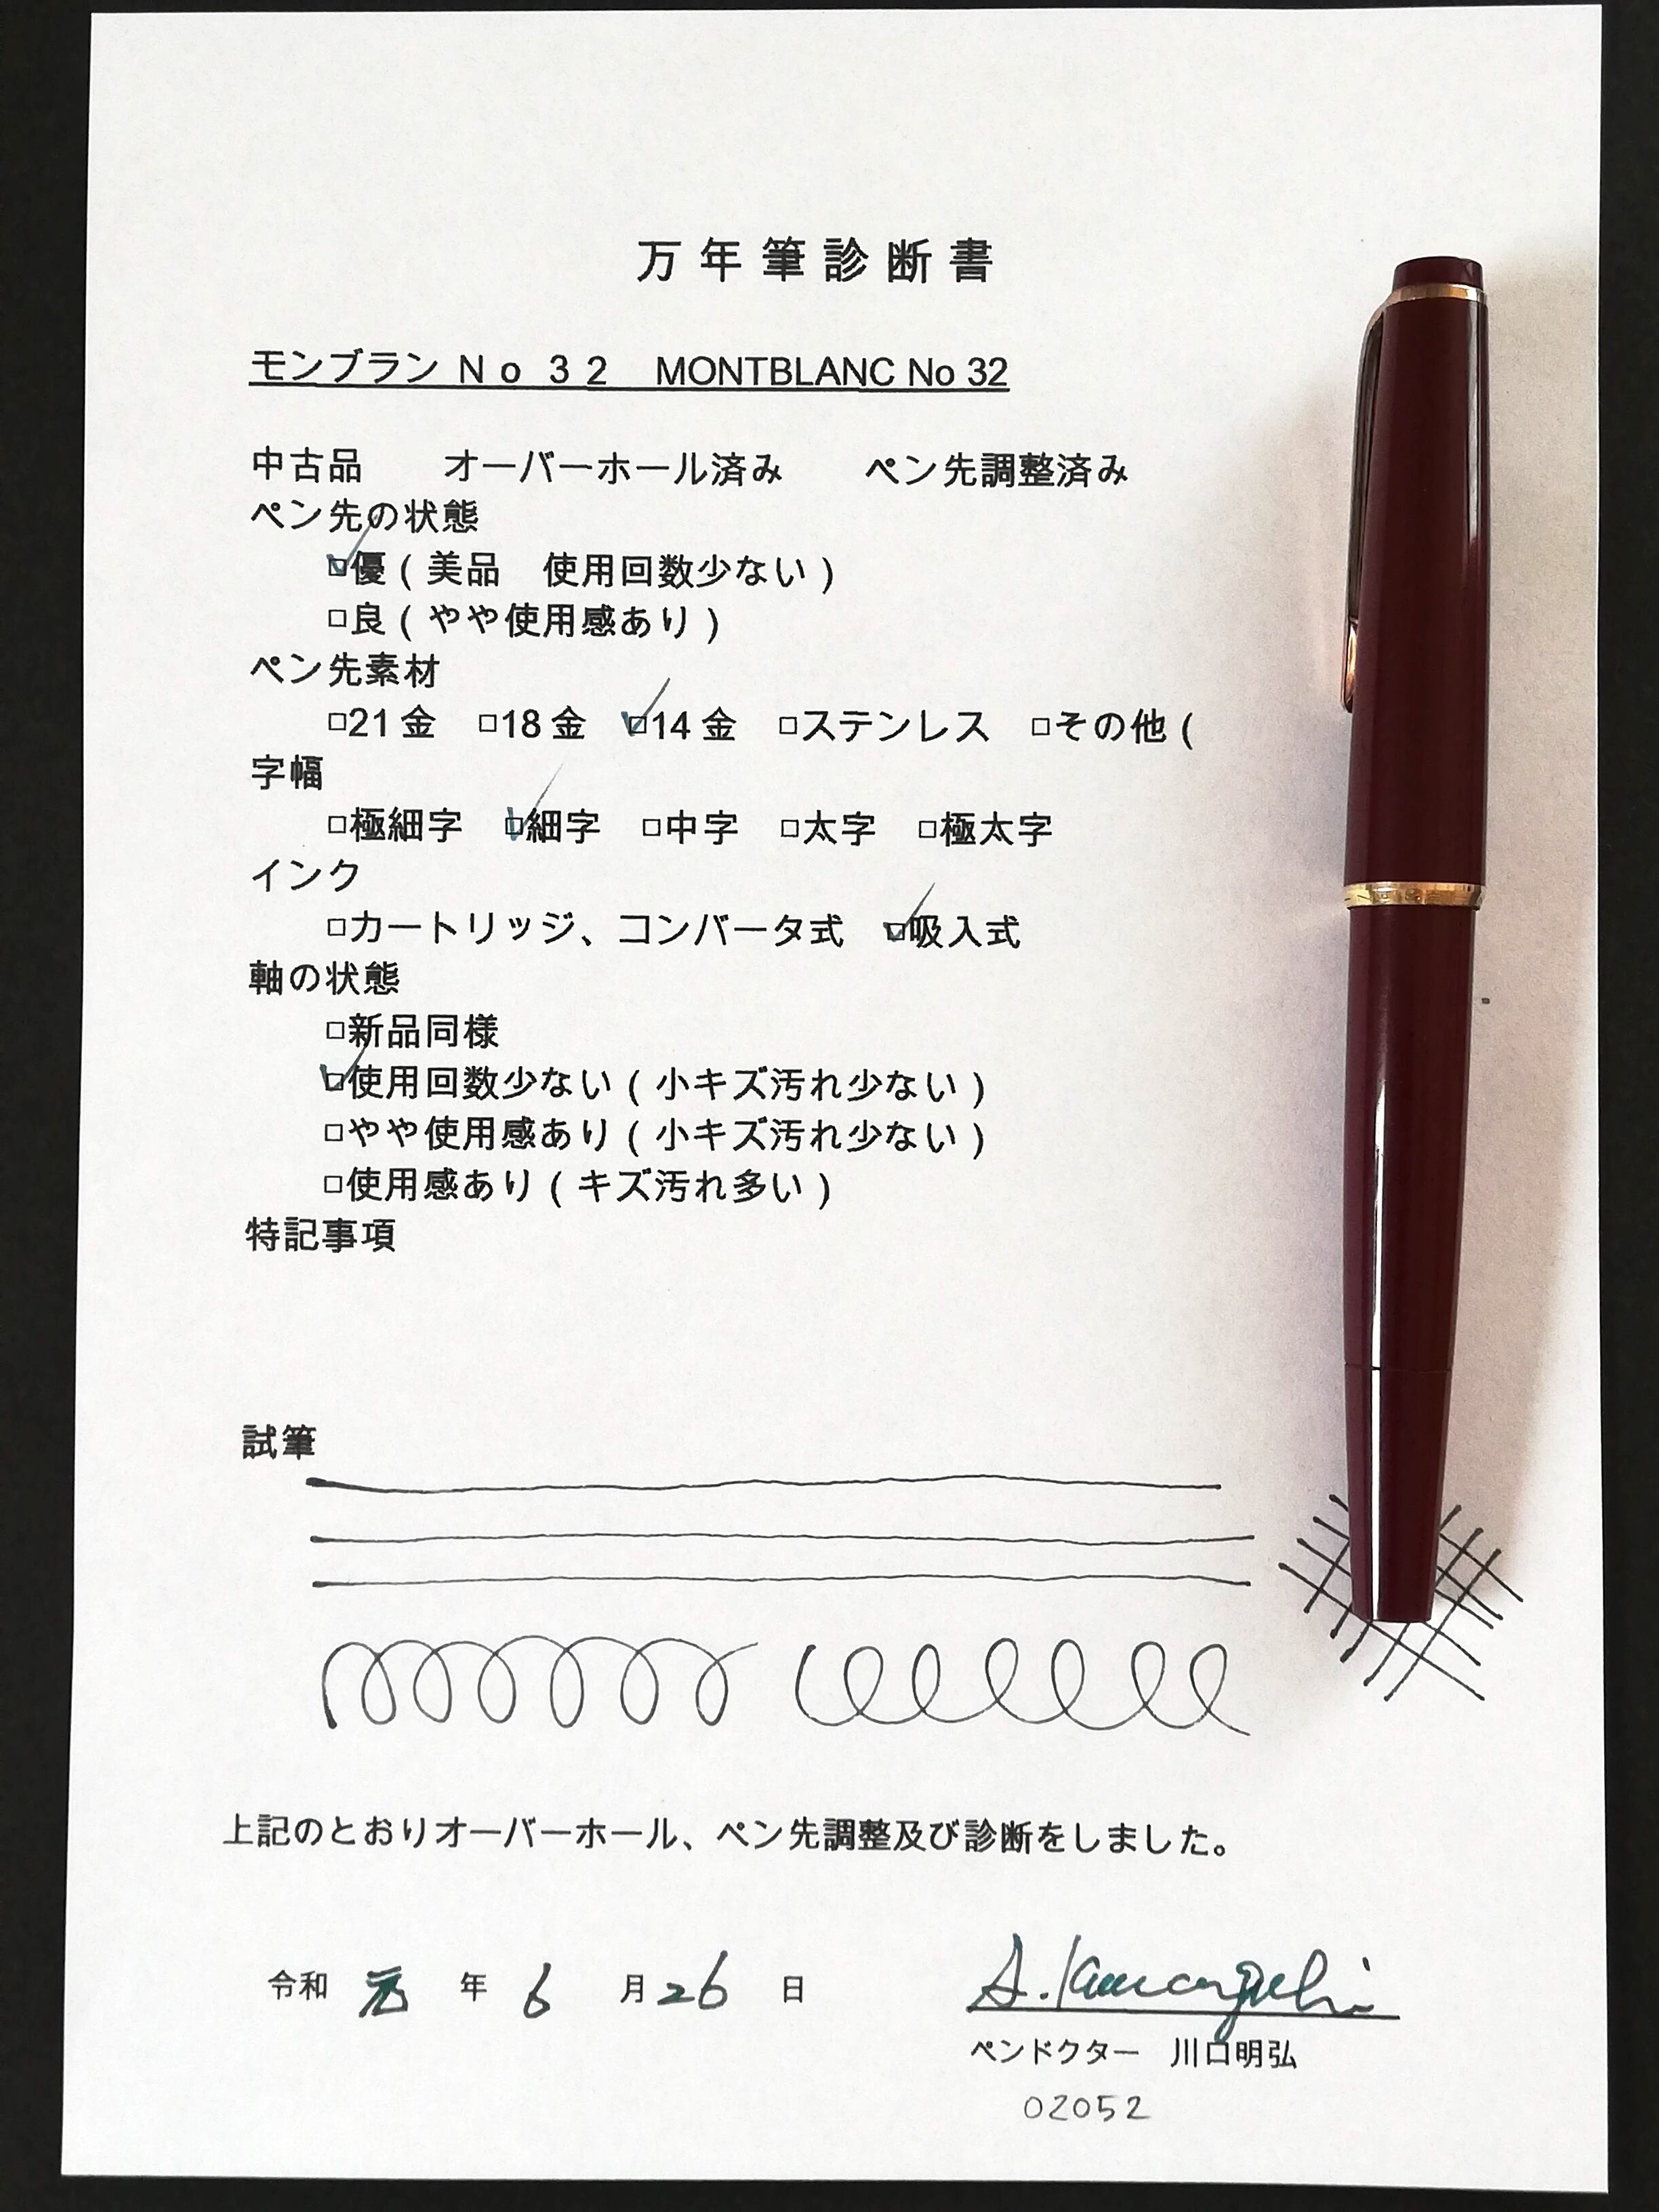 万年筆診断書
モンブラン Ｎｏ ３２　MONTBLANC No 32
中古品　　オーバーホール済み　　ペン先調整済み
ペン先の状態
☑優（美品　使用回数少ない）
□良（やや使用感あり）
ペン先素材
□21 金　□18 金　☑14 金　□ステンレス　□その他（
字幅
□極細字　☑細字　□中字　□太字　□極太字
インク
□カートリッジ、コンバータ式　☑吸入式
軸の状態
□新品同様
☑使用回数少ない（小キズ汚れ少ない）
□やや使用感あり（小キズ汚れ少ない）
□使用感あり（キズ汚れ多い）
特記事項
試筆
上記のとおりオーバーホール、ペン先調整及び診断をしました。
令和 元 年 6 月 26 日
A. Kawaguchi
ペンドクター　川口明弘
02052